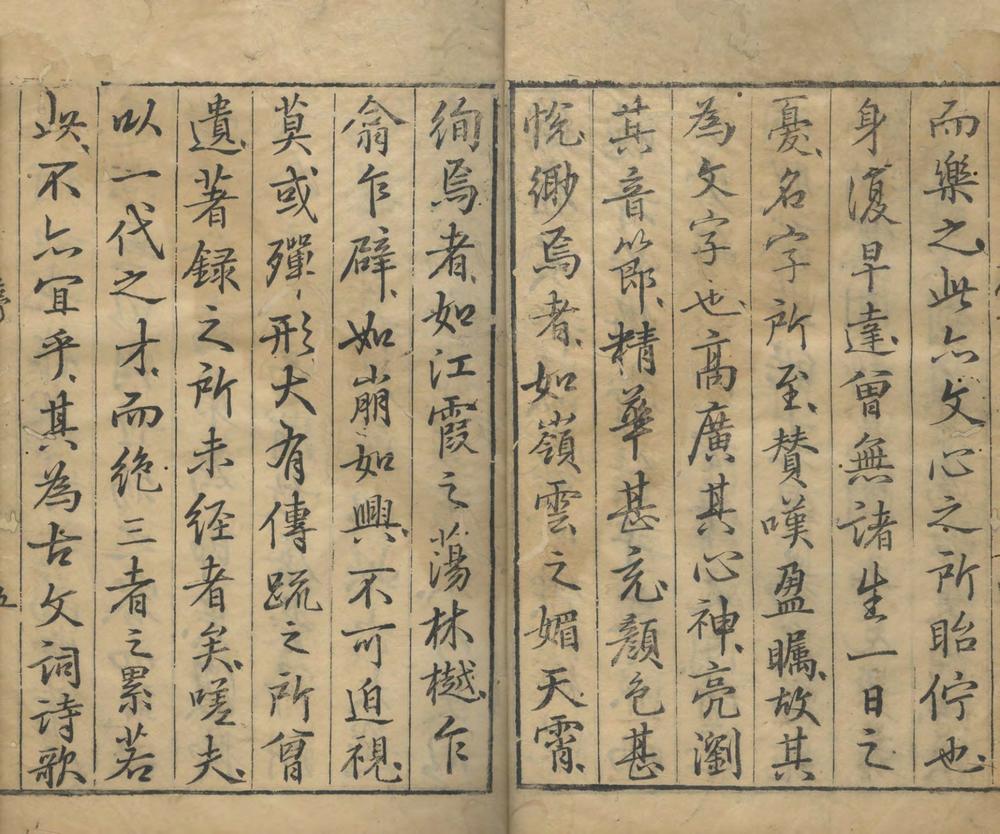 而樂之此亦文心之所眙佇也
身復早達曾無諸生一日之
憂名字所至賛嘆盈矚故其
為文字也高廣其心神亮瀏
其音節精華甚充顏色甚
悅緲焉者如嶺雲之媚天霄
絢焉者如江霞之蕩林樾乍
翕乍辟如崩如興不可迫視
莫或殫形大有傳䟽之所曾
遺著録之所未經者矣嗟夫
以一代之才而絕三者之累若
此不亦宜乎其為古文詞詩歌
五